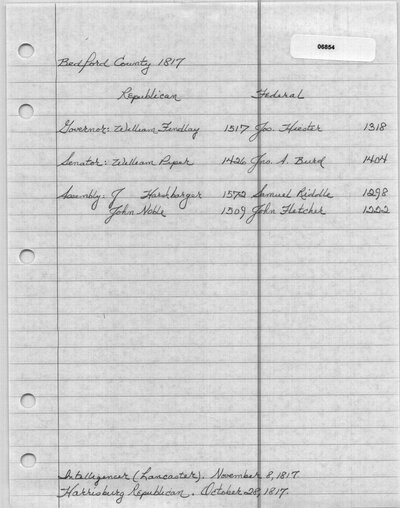 06854
Bedford County 1817
Republican Federal
Governor: William Findlay 1517 Jos. Hiester 1318
Senator: William Piper 1426 Jno. A. Burd 1404
Assembly: J Harshbarger 1572 Samuel Riddle 1298
John Noble 1509 John Fletcher 1222
Intelligencer (Lancaster). November 8, 1817
Harrisburg Republican. October 28, 1817.